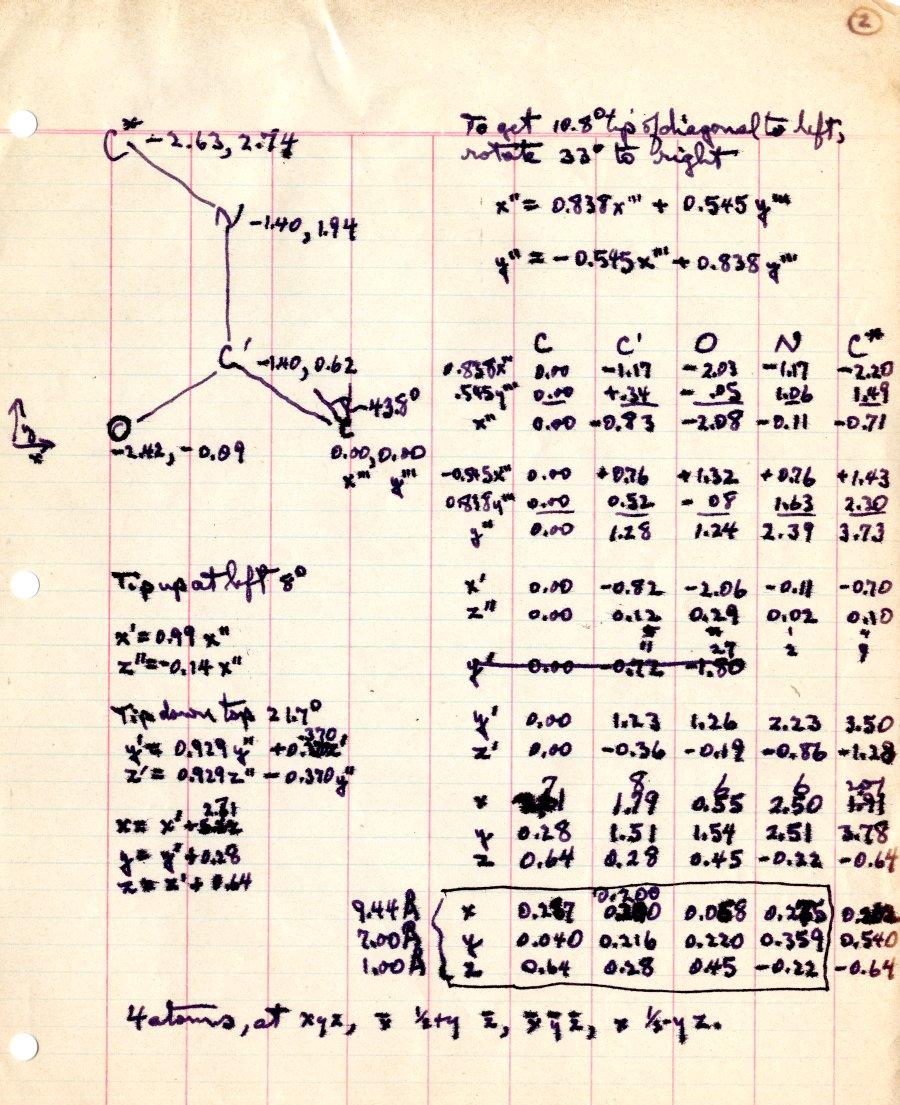 2
To get 10.8° tip of diagonal to left,
rotate 33° to right
x" = 0.838x''' + 0.545y'''
y" = -0.545x''' + 0.838y'''
C* -2.63, 2.74
N -1.40, 1.94
C' -1.40, 0.62
43.8°
O
-2.42, -0.09
C
0.00, 0.00
x''' y'''
y
x
C C' O N C*
0.838x''' 0.00 -1.17 -2.03 -1.17 -2.20
.545y''' 0.00 +.34 -.05 1.06 1.49
x" 0.00 -0.83 -2.08 -0.11 -0.71
-0.545x''' 0.00 +0.76 +1.32 +0.76 +1.43
0.838y''' 0.00 0.52 -08 1.63 2.30
y" 0.00 1.28 1.24 2.39 3.73
Tip up at left 8°
x' = 0.99 x"
z" = -0.14 x"
x' 0.00 -0.82 -2.06 -0.11 -0.70
z" 0.00 0.12 0.29 0.02 0.10
11 27 2 9
y' 0.00 -0.72 -1.80
Tip down top 21.7°
y' = 0.929 y" + 0.370z'
z' = 0.929z" - 0.370y"
y' 0.00 1.23 1.26 2.23 3.50
z' 0.00 -0.36 -0.19 -0.86 -1.28
x = x' + 2.71
y = y' + 0.28
z = z' + 0.64
7 8 6 6
x 1.79 0.55 2.50 1.91
y 0.28 1.51 1.54 2.51 3.78
z 0.64 0.28 0.45 -0.22 -0.64
0.200
9.44Å x 0.287 0.058 0.265
7.00Å y 0.040 0.216 0.220 0.359 0.540
1.00Å z 0.64 0.28 0.45 -0.22 -0.64
4 atoms, at xyz, x̄ ½+y z̄, x̄ȳz̄, x ½-y z.